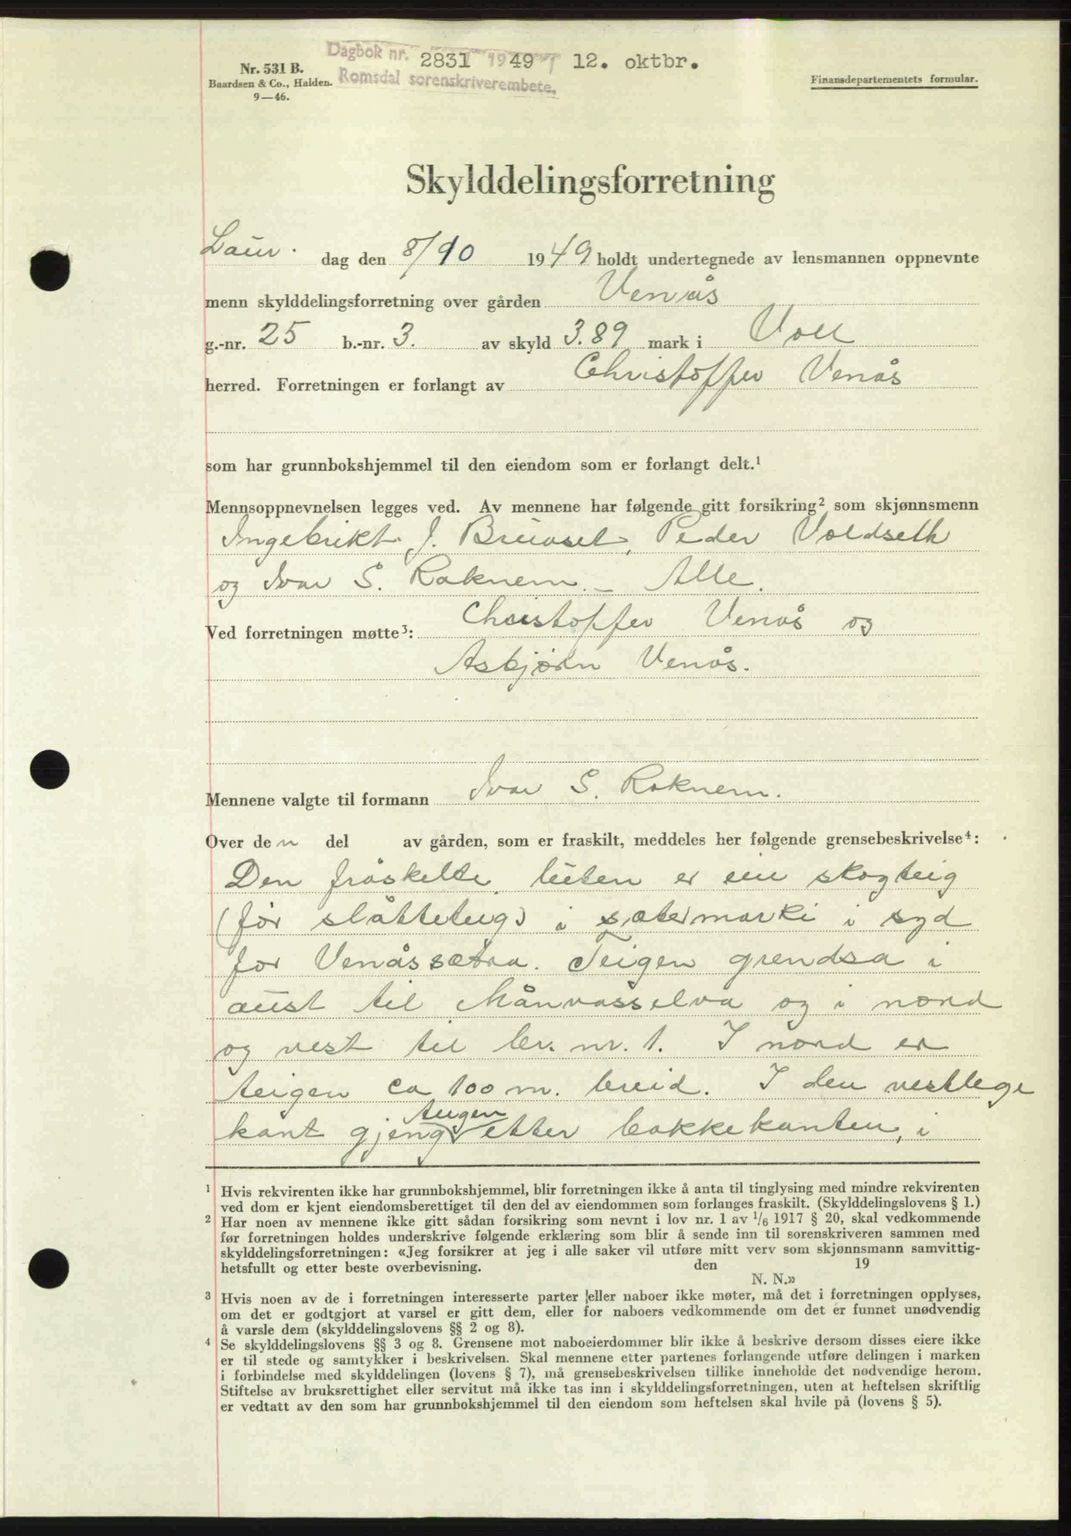 Dagbok nr. 2831 1949 12. oktbr.
Romsdal sorenskriverembete.
Nr. 531 B.
Baardsen & Co., Halden.
9—46.
Finansdepartementets formular.
Skylddelingsforretning
Laur. dag den 8/10 1949 holdt undertegnede av lensmannen oppnevnte
menn skylddelingsforretning over gården Venås
g.-nr. 25 b.-nr. 3. av skyld 3.89 mark i Voll
herred. Forretningen er forlangt av Christoffer Venås
som har grunnbokshjemmel til den eiendom som er forlangt delt.¹
Mennsoppnevnelsen legges ved. Av mennene har følgende gitt forsikring² som skjønnsmenn
Ingebrikt J. Bruaset, Peder Voldseth
og Ivar S. Raknem. — Alle.
Ved forretningen møtte³: Christoffer Venås og
Asbjørn Venås.
Mennene valgte til formann Ivar S. Raknem.
Over den del av gården, som er fraskilt, meddeles her følgende grensebeskrivelse⁴:
Den fråskelte luten er ein skogteig
(før slåtteteig) i sætermarki i syd
for Venåssætra. Teigen grendsa i
aust til Månvasselva og i nord
og vest til br. nr. 1. I nord er
teigen ca 100 m. breid. I den vestlege
kant gjeng teigen etter bakkekanten, i
¹ Hvis rekvirenten ikke har grunnbokshjemmel, blir forretningen ikke å anta til tinglysing med mindre rekvirenten
ved dom er kjent eiendomsberettiget til den del av eiendommen som forlanges fraskilt. (Skylddelingslovens § 1.)
² Har noen av mennene ikke gitt sådan forsikring som nevnt i lov nr. 1 av 1/6 1917 § 20, skal vedkommende
før forretningen holdes underskrive følgende erklæring som blir å sende inn til sorenskriveren sammen med
skylddelingsforretningen: «Jeg forsikrer at jeg i alle saker vil utføre mitt verv som skjønnsmann samvittig-
hetsfullt og etter beste overbevisning. den 19
N. N.»
³ Hvis noen av de i forretningen interesserte parter eller naboer ikke møter, må det i forretningen opplyses,
om det er godtgjort at varsel er gitt dem, eller for naboers vedkommende om det er funnet unødvendig
å varsle dem (skylddelingslovens §§ 2 og 8).
⁴ Se skylddelingslovens §§ 3 og 8. Grensene mot naboeierdommer blir ikke å beskrive dersom disses eiere ikke
er til stede og samtykker i beskrivelsen. Skal mennene etter partenes forlangende utføre delingen i marken
i forbindelse med skylddelingen (lovens § 7), må grensebeskrivelsen tillike inneholde det nødvendige herom.
Stiftelse av bruksrettighet eller servitut må ikke tas inn i skylddelingsforretningen, uten at heftelsen skriftlig
er vedtatt av den som har grunnbokshjemmel til den eiendom som heftelsen skal hvile på (lovens § 5).